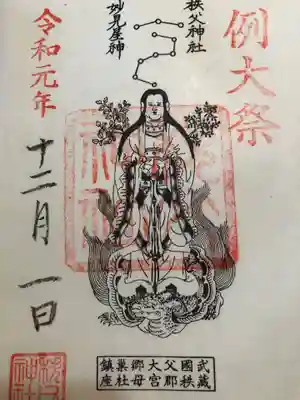 例大祭
秩父神社
妙見星神
令和元年
十二月一日
武蔵
國秩
父郡
大宮
郷母
巣社
鎮座
秩父
神社